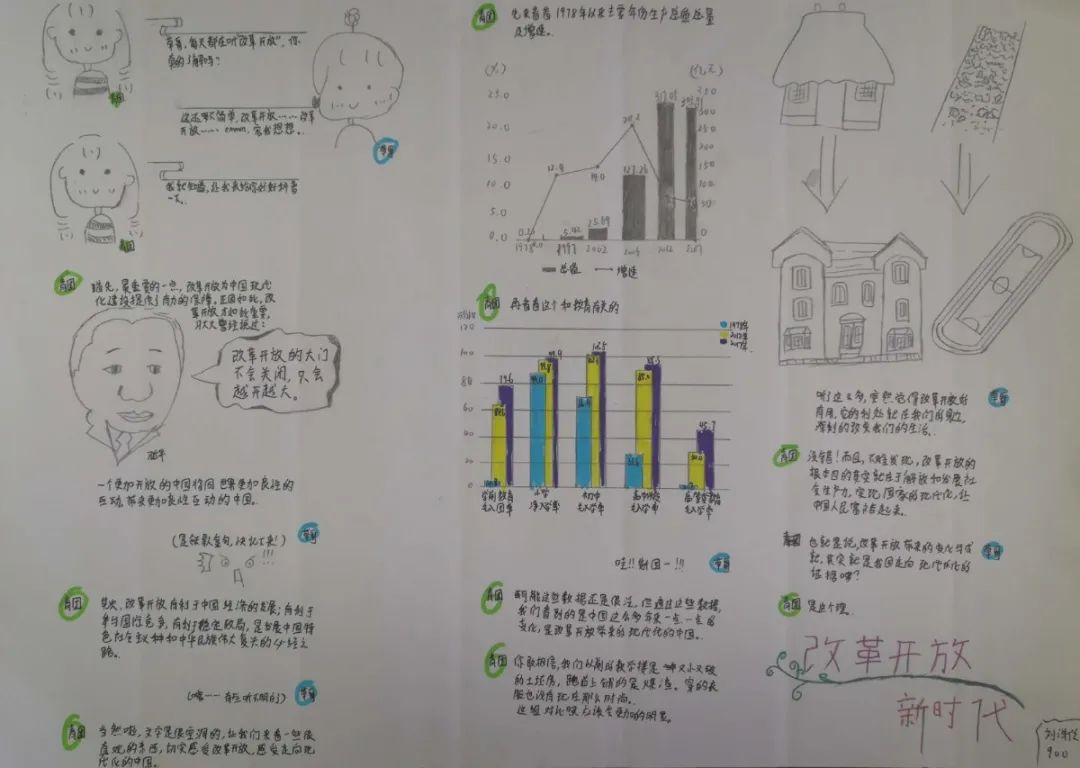 每天都在听"改革开放",你
真的了解吗?
这还不简单,改革开放……改革
开放…… emmm,容我想想。
我就知道,让我来给你好好科普
一下。
青团
首先,最重要的一点,改革开放为中国现代
化建设提供了有力的保障。正因如此,改
革开放才如此重要,
习大大曾经说过:
改革开放的大门
不会关闭,只会
越开越大。
习近平
一个更加开放的中国将同世界更加良性的
互动,带来更加
互动的中国。
(是任欧金句,快记下来!)
!!!
青团
其次,改革开放有利于中国经济的发展;有利于
有利于稳定政局,是发展中国特
色社会主义和中华民族伟大复兴的必经之
路。
青团
当然啦,文字是很空洞的,让我们来看一些很
直观的东西,切实感受改革开放,感受走向现
代化的中国。
青团
先来看看1978年以来主要年份生产总值总量
及增速。
(%)
(亿元)
25.0
20.0
15.0
10.0
5.0
0.0
350
300
250
200
150
100
50
0
12.9
14.0
20.2
25.89
127.26
1978
1997
2002
2012
2017
总量
增速
青团
再看看这个和教育有关的
120
100
80
60
40
20
0
1978年
2012年
2017年
79.6
45.7
学前教育
毛入园率
小学
净入学率
初中
毛入学率
高中阶段
毛入学率
高等教育
毛入学率
哇!!
!!!
青团
可能这些数据还是很泛,但通过这些数据,
我们看到的是中国这么多年来一点一点的
变化,是改革开放带来的现代化的中国。
青团
你敢相信,我们以前的教学楼是一种又小又破
的土坯房,跑道上铺的是煤渣。穿的衣
服也没有现在那么时尚。
这组对比照应该会更加的明显。
听了这么多,突然觉得改革开放好
有用,它的利处就在我们身边,
深刻的改变我们的生活。
青团
没错!而且,不难发现,改革开放的
根本目的其实就在于解放和发展社
会生产力,实现国家的现代化,让
中国人民富裕起来。
也就是说,改革开放带来的变化与成
就,其实就是我国走向现代化的
证据喽?
青团
是这个理。
改革开放
新时代
900